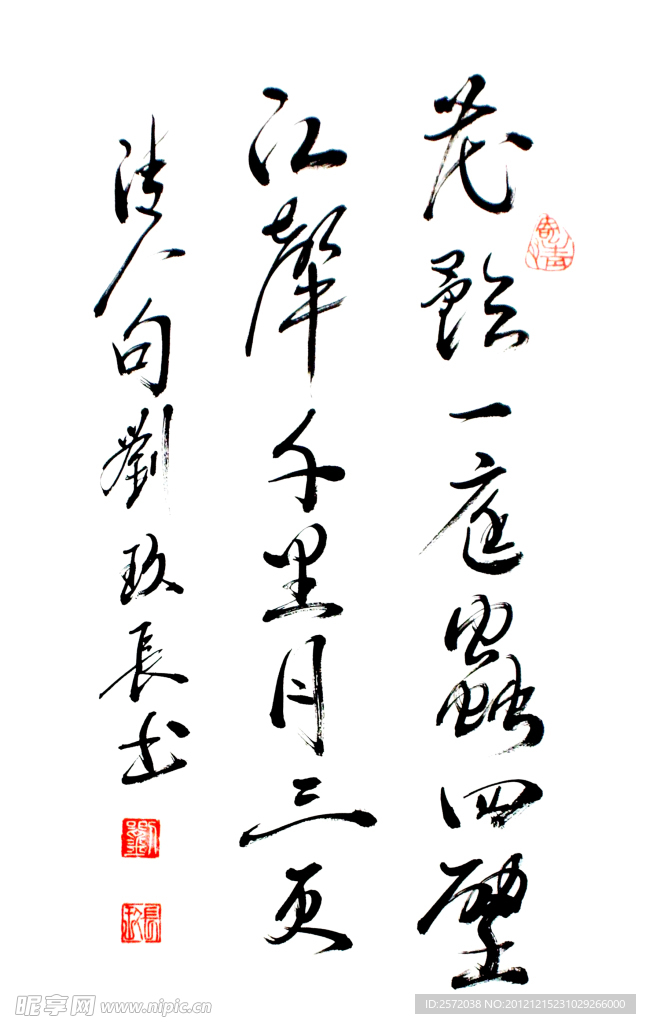 花影一庭蟲四壁
江聲千里月三更
清人句劉玖長書
昵享网 www.nipic.cn
ID:2572038 NO:20121215231029266000